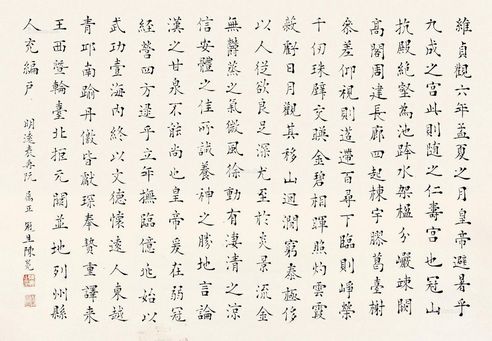 維貞觀六年孟夏之月皇帝避暑乎
九成之宮此則隨之仁壽宮也冠山
抗殿絕壑為池跨水架楹分巖竦闕
高閣周建長廊四起棟宇膠葛臺榭
參差仰視則迢遰百尋下臨則崢嶸
千仞珠璧交暎金碧相暉照灼雲霞
蔽虧日月觀其移山迴澗窮泰極侈
以人從欲良足深尤至於炎景流金
無鬱蒸之氣微風徐動有淒清之涼
信安體之佳所誠養神之勝地言論
漢之甘泉不能尚也皇帝爰在弱冠
經營四方逮乎立年撫臨億兆始以
武功壹海內終以文德懷遠人東越
青邱南踰丹儌皆獻琛奉贄重譯來
王西暨輪臺北拒元闕並地列州縣
人充編戶 明遠